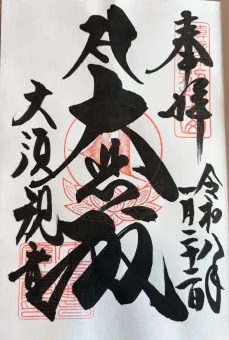 奉拝
令和八年
一月二十二日
大悲殿
大須観音